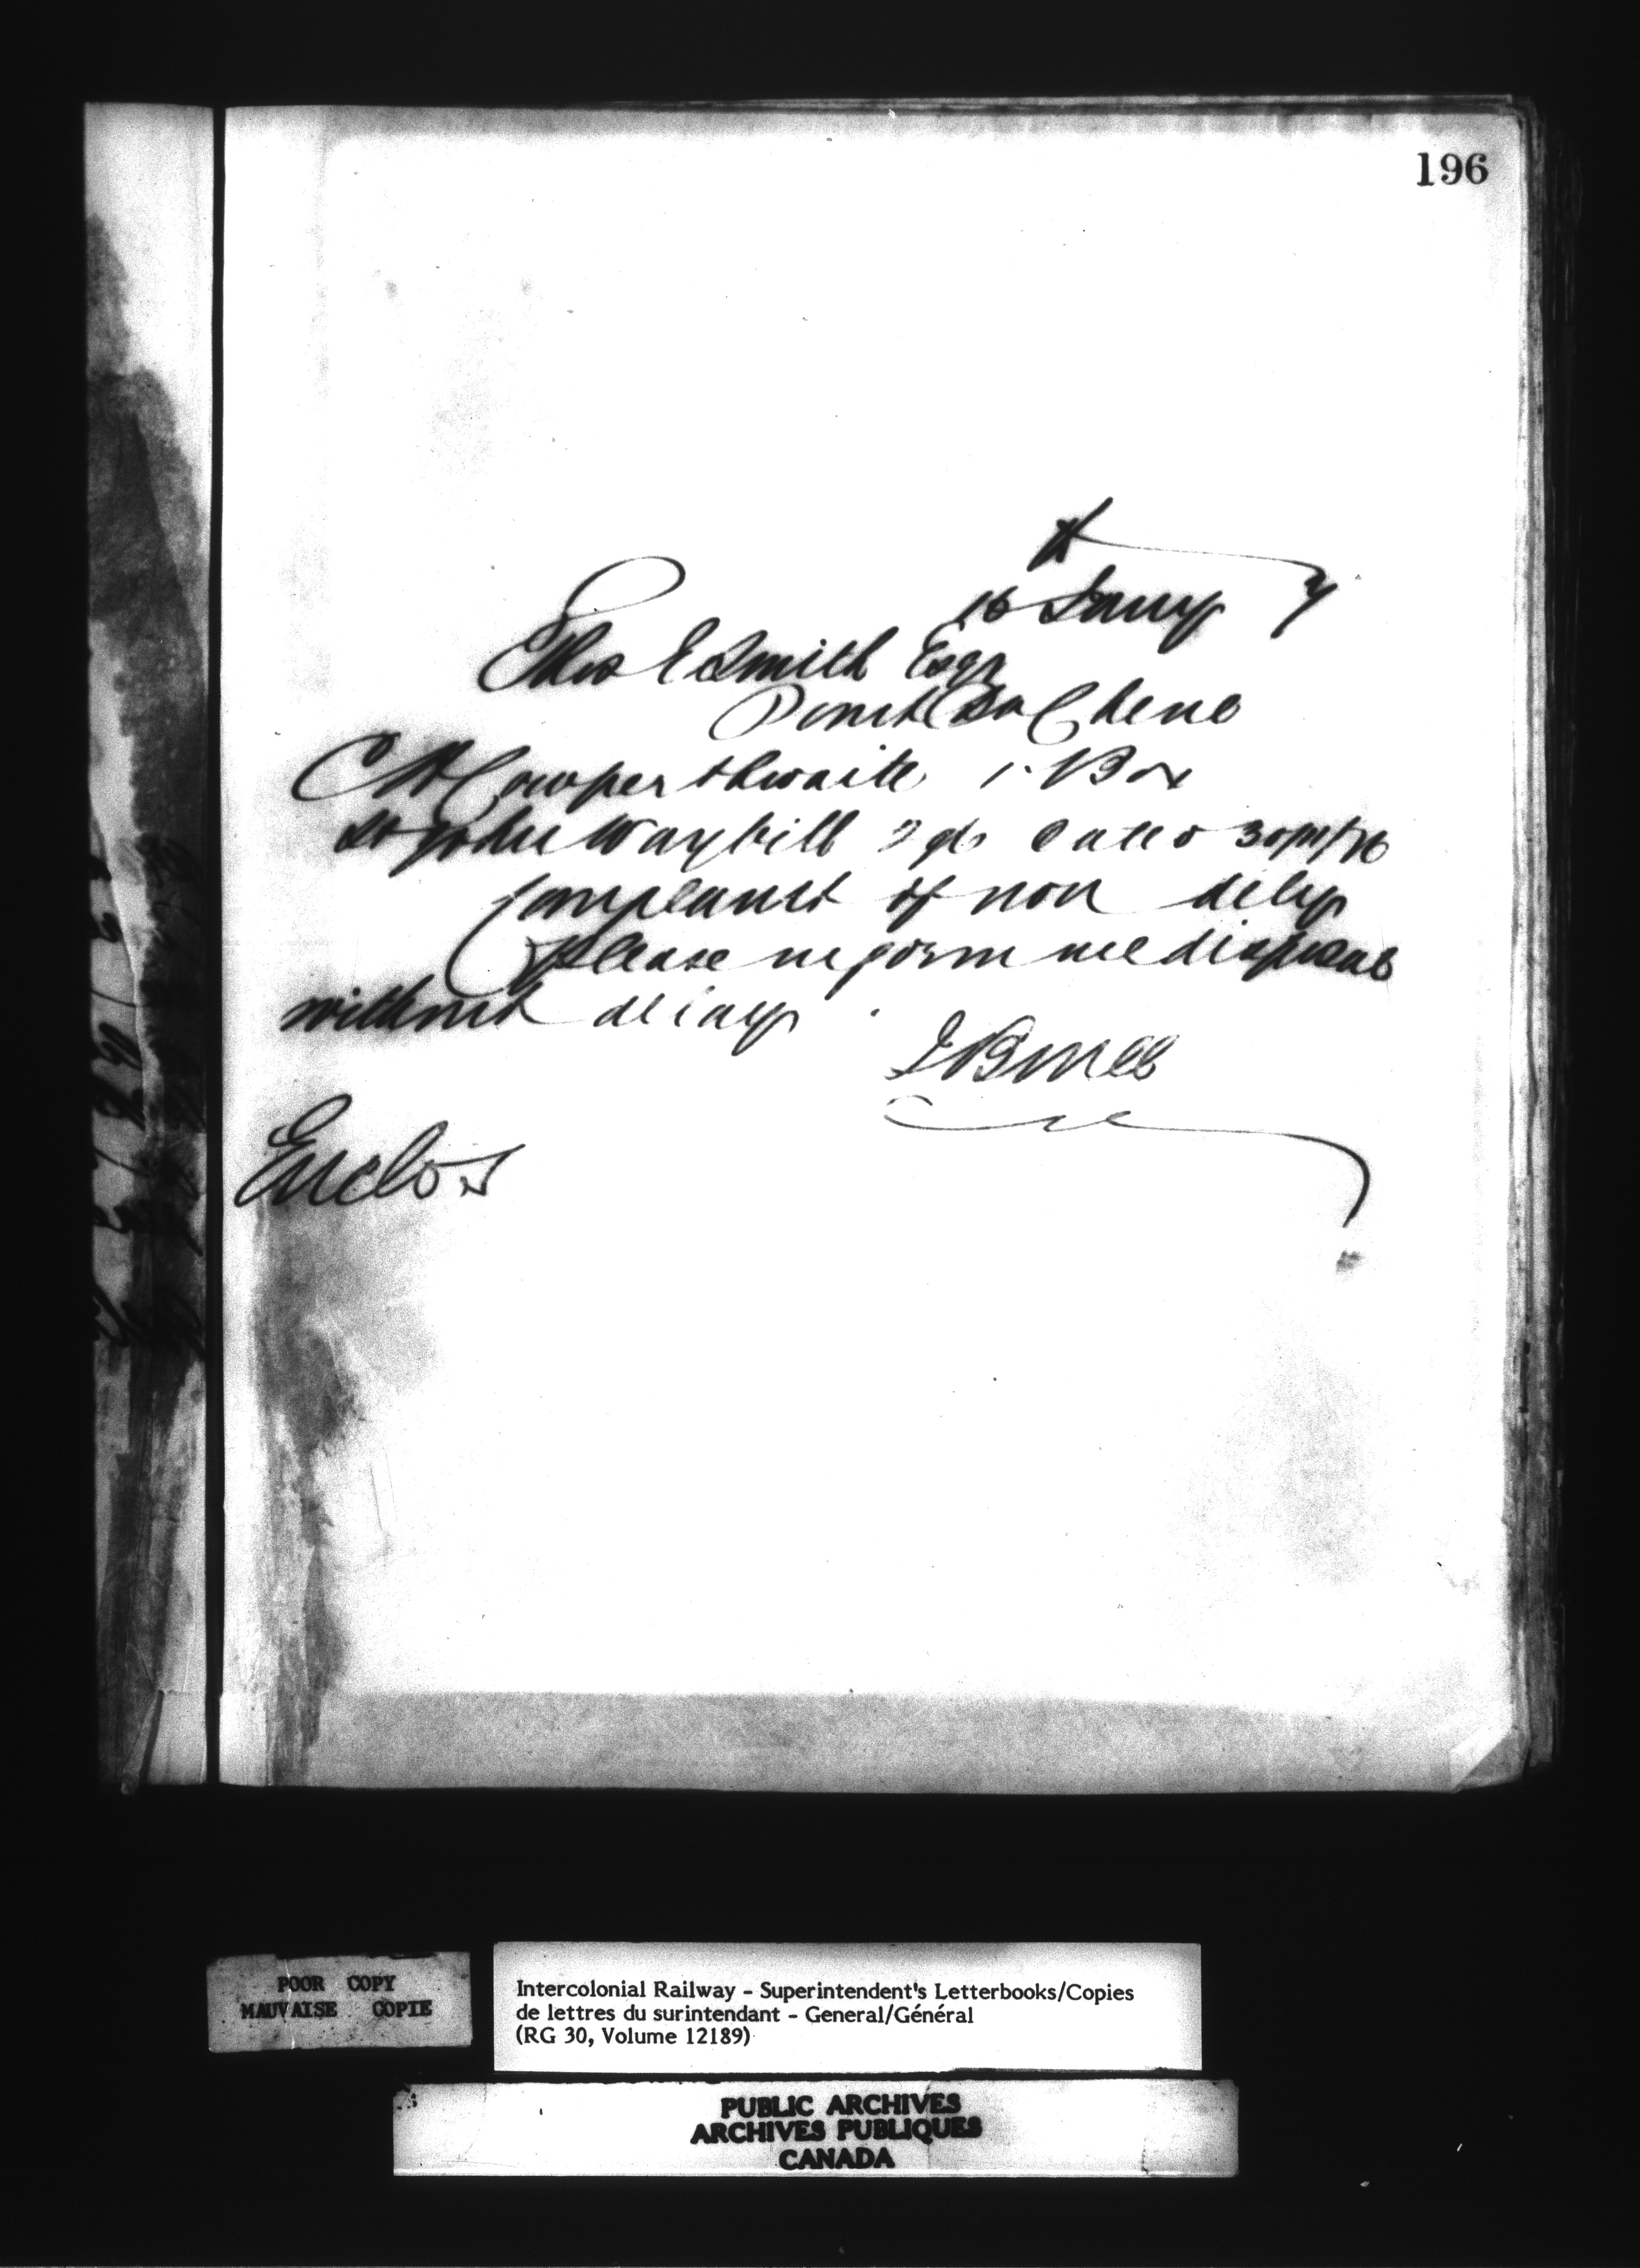 196
16 Jany 7
Thos E Smith Esqr
Point Du Chene
C H Cowperthwaite 1 Box
St John Waybill dated 30/11/76
Complaint of non dely
Please inform me disposal
without delay
Enclos
POOR COPY
MAUVAISE COPIE
Intercolonial Railway - Superintendent's Letterbooks/Copies
de lettres du surintendant - General/Général
(RG 30, Volume 12189)
PUBLIC ARCHIVES
ARCHIVES PUBLIQUES
CANADA